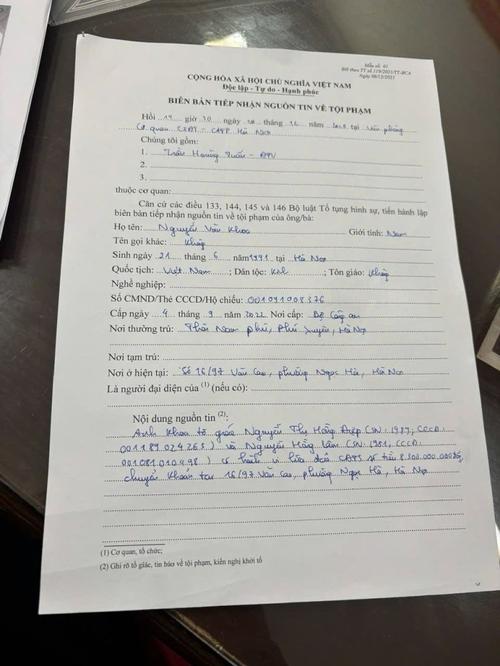 Mẫu số: 01
BH theo TT số 119/2021/TT-BCA
Ngày 08/12/2021
CỘNG HÒA XÃ HỘI CHỦ NGHĨA VIỆT NAM
Độc lập - Tự do - Hạnh phúc
BIÊN BẢN TIẾP NHẬN NGUỒN TIN VỀ TỘI PHẠM
Hồi 19 giờ 30 ngày tháng 12 năm tại Văn phòng
Cơ quan CSĐT - CATP Hà Nội
Chúng tôi gồm:
1. Trần Hoàng Tuấn - ĐTV
2.
3.
thuộc cơ quan:
Căn cứ các điều 133, 144, 145 và 146 Bộ luật Tố tụng hình sự, tiến hành lập
biên bản tiếp nhận nguồn tin về tội phạm của ông/bà:
Họ tên: Nguyễn Văn Khoa Giới tính: Nam
Tên gọi khác: Không
Sinh ngày 21 tháng 6 năm 1991 tại Hà Nội
Quốc tịch: Việt Nam; Dân tộc: Kinh; Tôn giáo: Không
Nghề nghiệp:
Số CMND/Thẻ CCCD/Hộ chiếu: 001091008376
Cấp ngày 4 tháng 9 năm 2022 Nơi cấp: Bộ Công an
Nơi thường trú: Thôn Nam Phú, Phú Xuyên, Hà Nội
Nơi tạm trú:
Nơi ở hiện tại: Số 16/97 Văn Cao, phường Ngọc Hà, Hà Nội
Là người đại diện của (1) (nếu có):
Nội dung nguồn tin (2):
Anh Khoa tố giác Nguyễn Thị Hồng Điệp (SN: 1987, CCCD:
001189024265) và Nguyễn Hồng (SN: 1981, CCCD:
001081010498) có hành vi lừa đảo CĐTS số tiền 8.300.000.000đ,
chuyển khoản tại 16/97 Văn Cao, phường Ngọc Hà, Hà Nội
(1) Cơ quan, tổ chức;
(2) Ghi rõ tố giác, tin báo về tội phạm, kiến nghị khởi tố